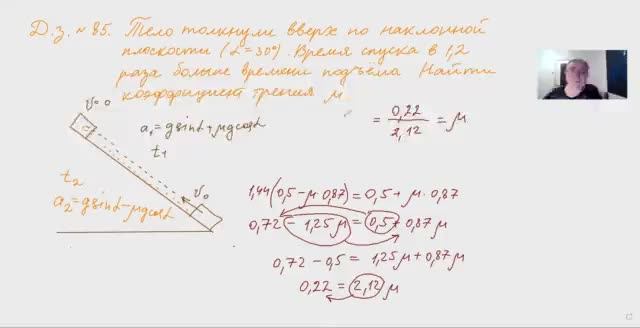 Д.з. № 85. Тело толкнули вверх по наклонной
плоскости (α = 30°). Время спуска в 1,2
раза больше времени подъёма Найти
коэффициент трения μ
υ=0
a₁=gsinα+μgcosα
t₁
t₂
a₂=gsinα-μgcosα
υ₀
= 0,22 / 2,12 = μ
1,44(0,5-μ·0,87)=0,5+μ·0,87
0,72 - 1,25μ = 0,5 + 0,87μ
0,72 - 0,5 = 1,25μ + 0,87μ
0,22 = 2,12 μ